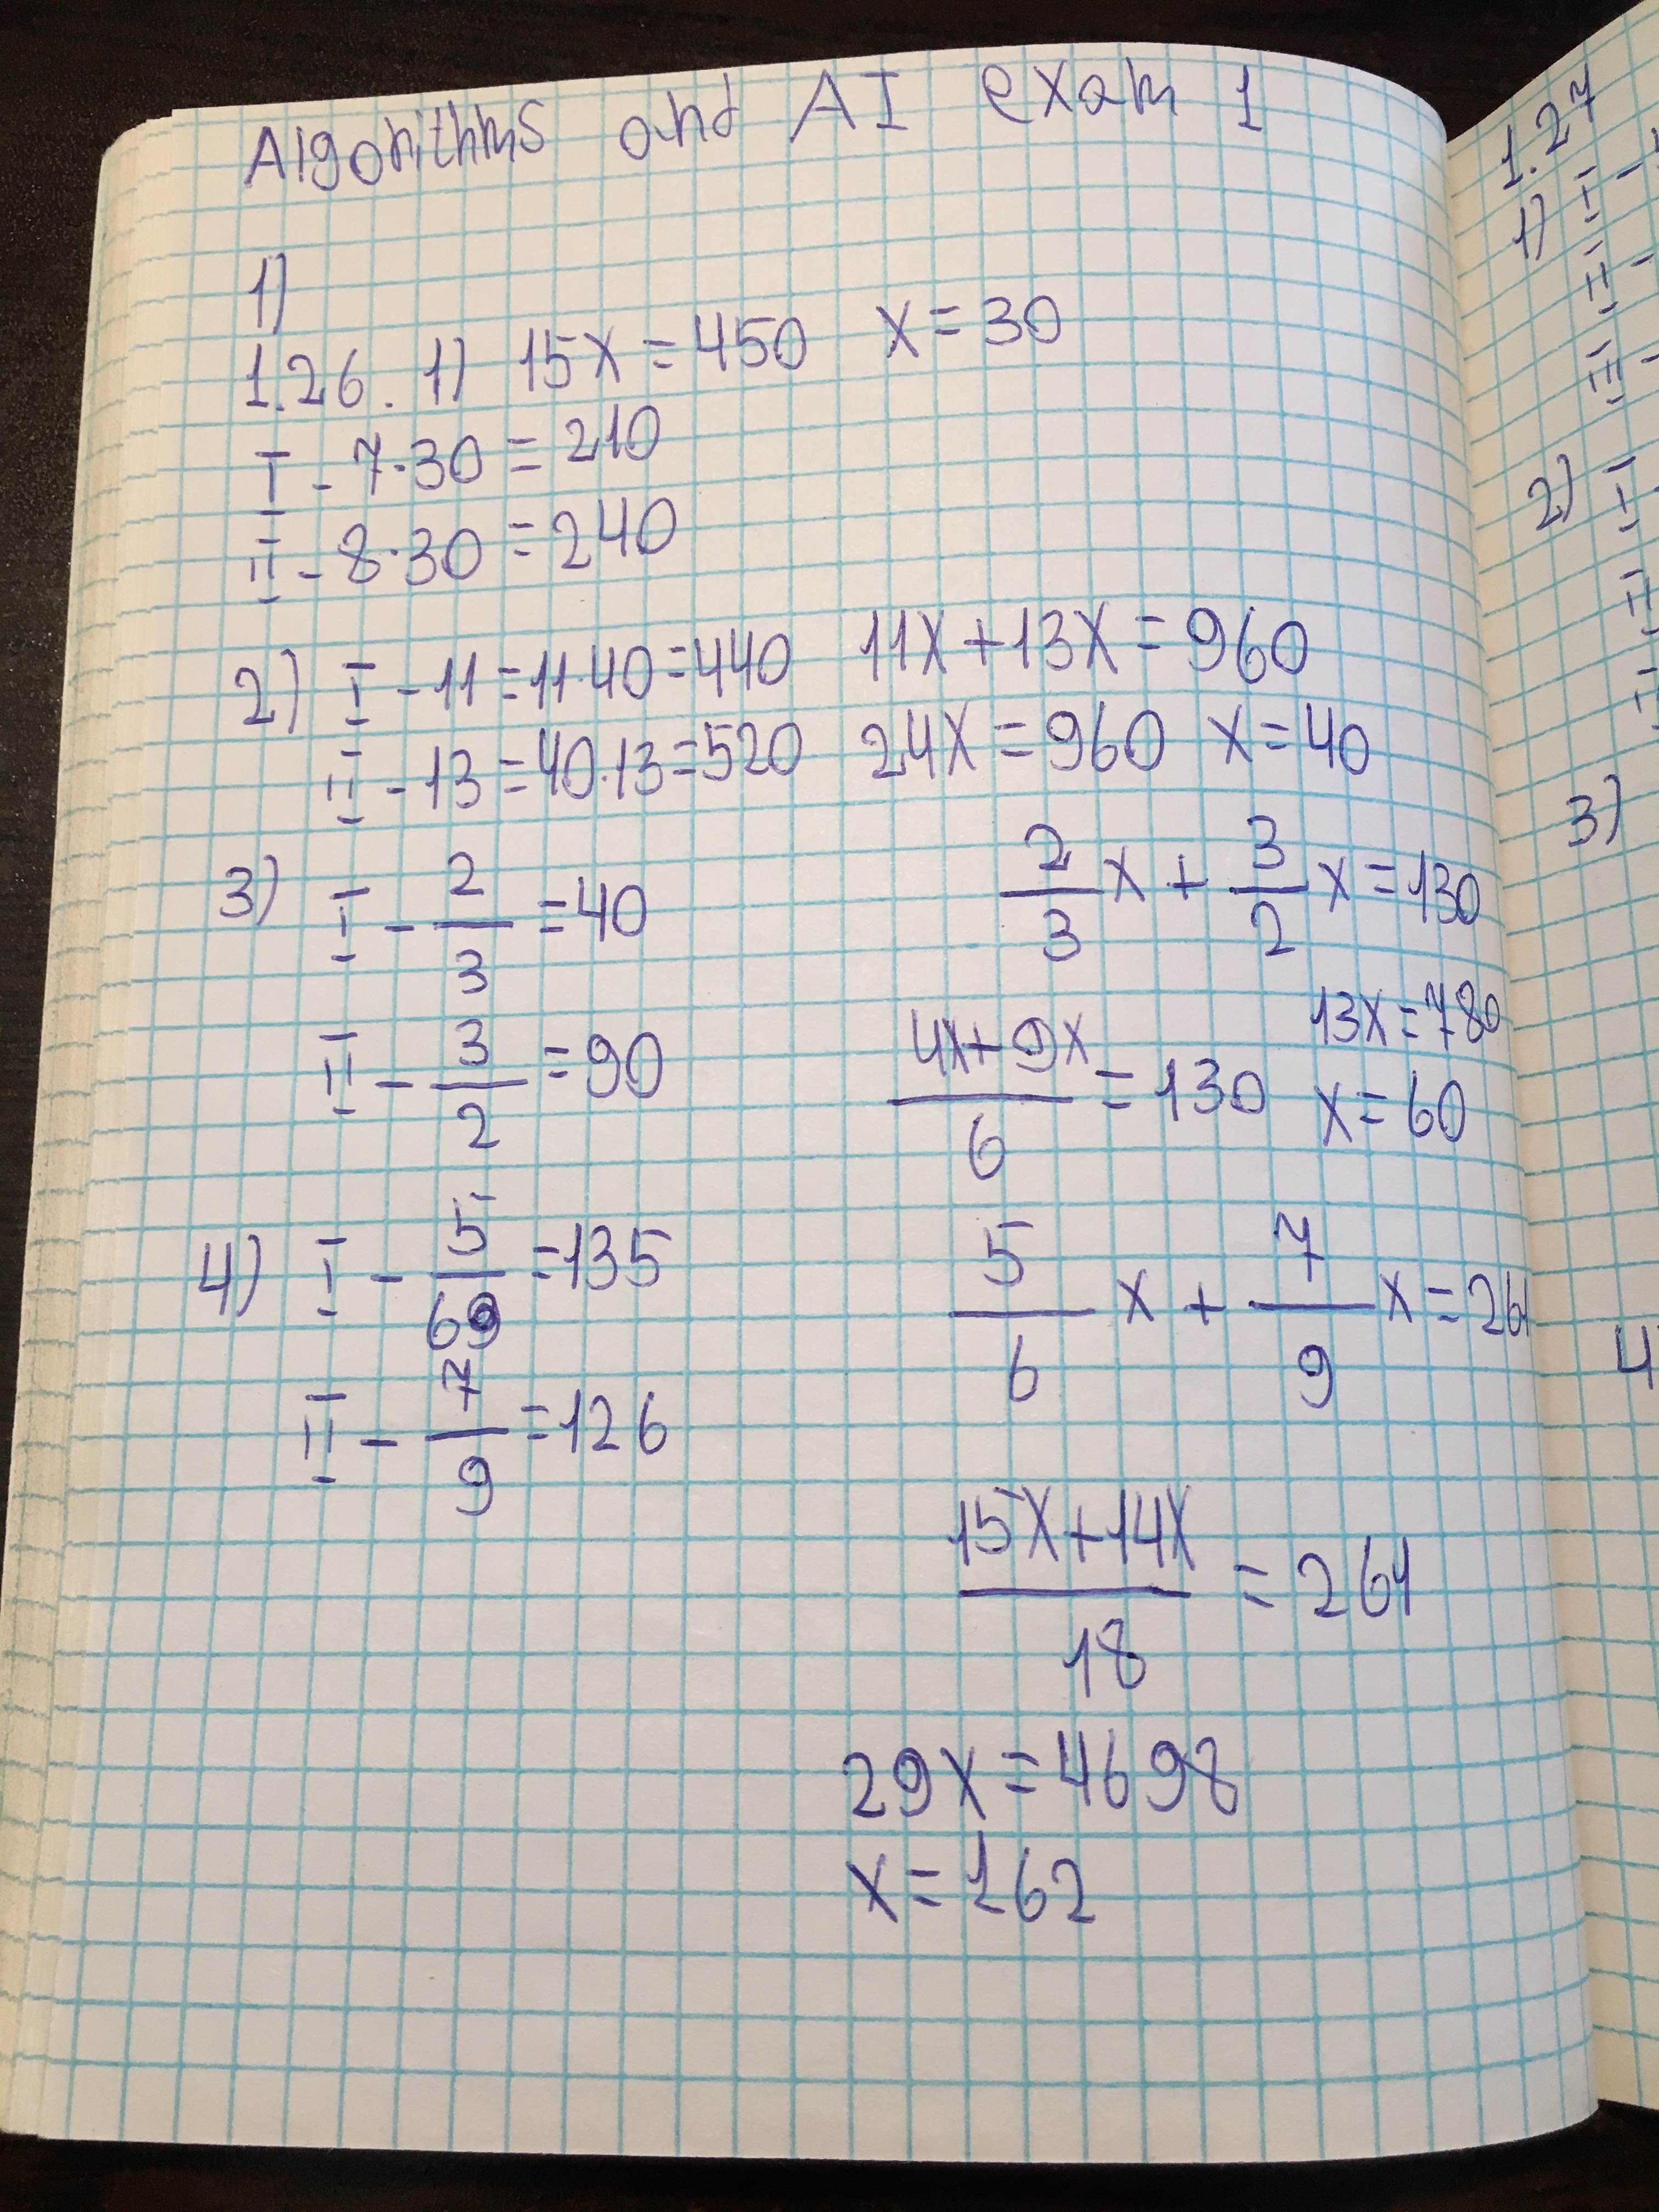 Algorithms and AI exam 1
1)
1.26. 1) 15x=450 x=30
I - 7·30=210
II - 8·30=240
2) I - 11=11·40=440 11x+13x=960
II - 13=40·13=520 24x=960 x=40
3) I - 2/3 =40 2/3 x + 3/2 x=130
II - 3/2 =90 (4x+9x)/6 =130 13x=780
x=60
4) I - 5/69 =135 5/6 x + 7/9 x=261
II - 7/9 =126
(15x+14x)/18 =261
29x=4698
x=162
1.27
1) I -
II -
III -
2) I
II
3)
4)